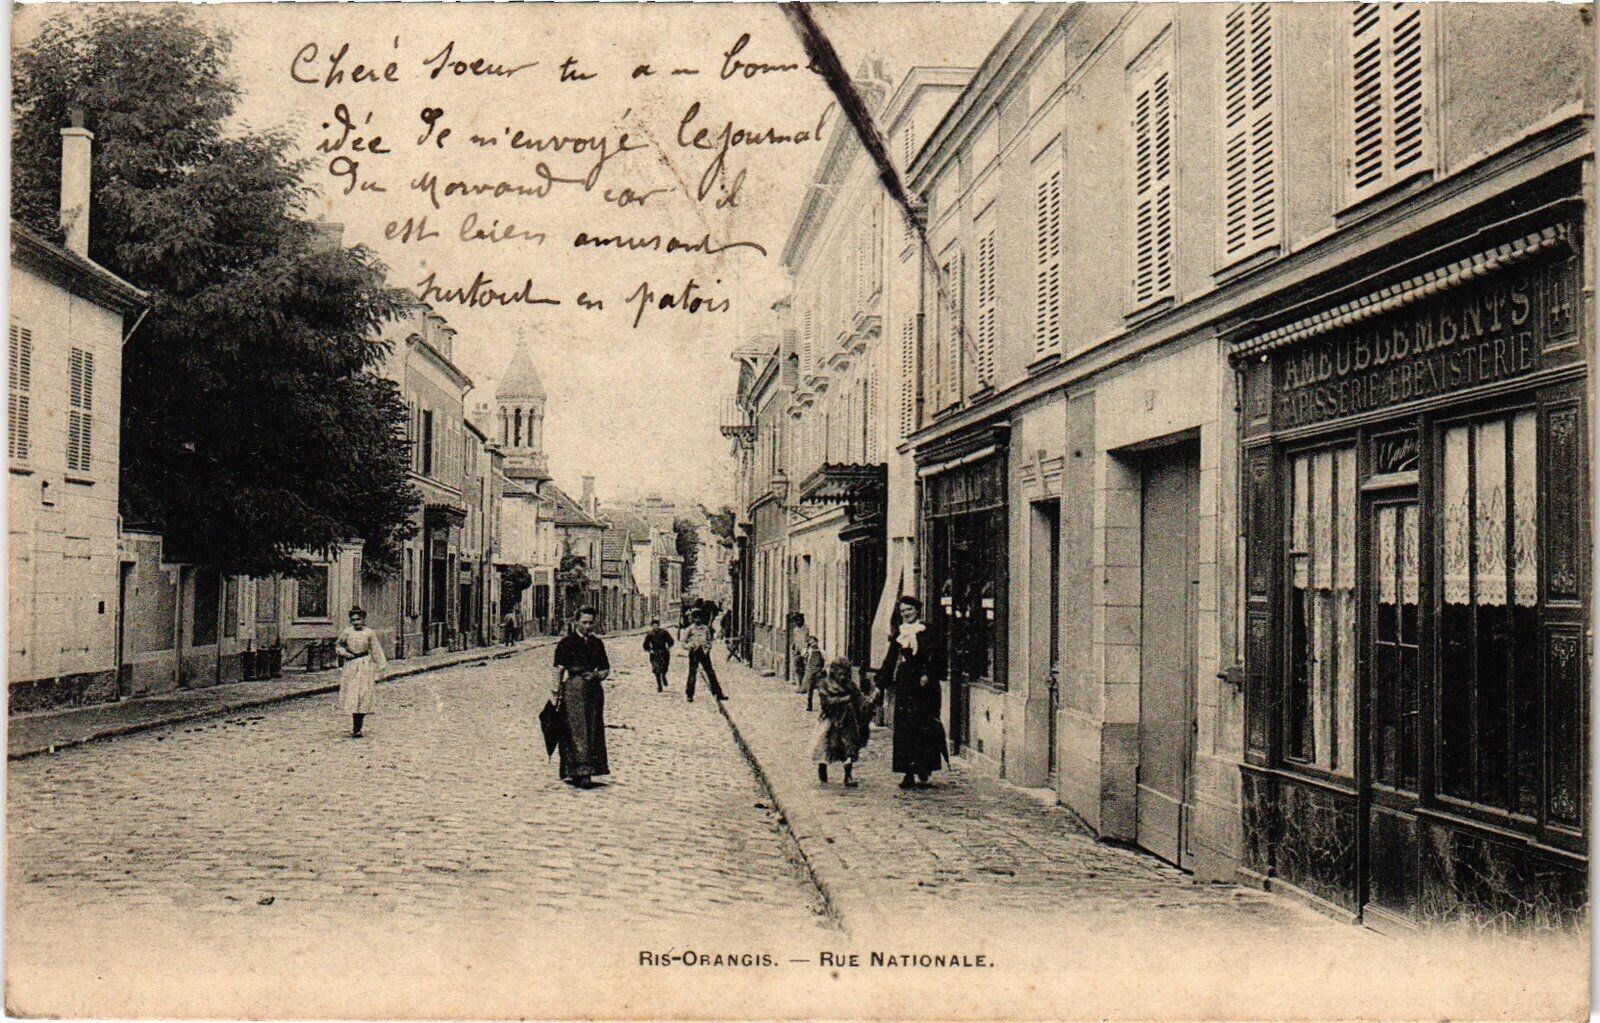 Cheré soeur tu a u bonne
idée de m'envoyé le journal
du Morvand car il
est bien amusant
surtout en patois
AMEUBLEMENTS
TAPISSERIE & EBENISTERIE
44
RIS-ORANGIS. — RUE NATIONALE.